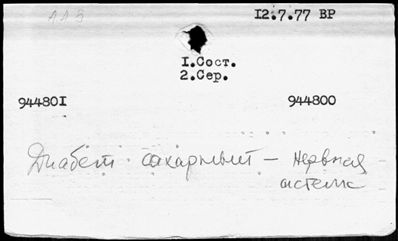 12.7.77 ВР
1.Сост.
2.Сер.
944801 944800
Диабет сахарный – нервная
система